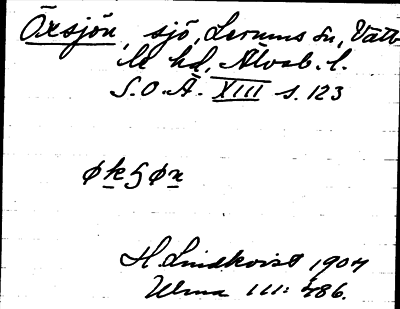 Öxsjön, sjö, Lerums sn, Vätt-
le hd, Älvsb. l.
S.O.Ä. XIII s. 123
økʃøn
H. Lindkvist 1904
Ulma 111: 486.